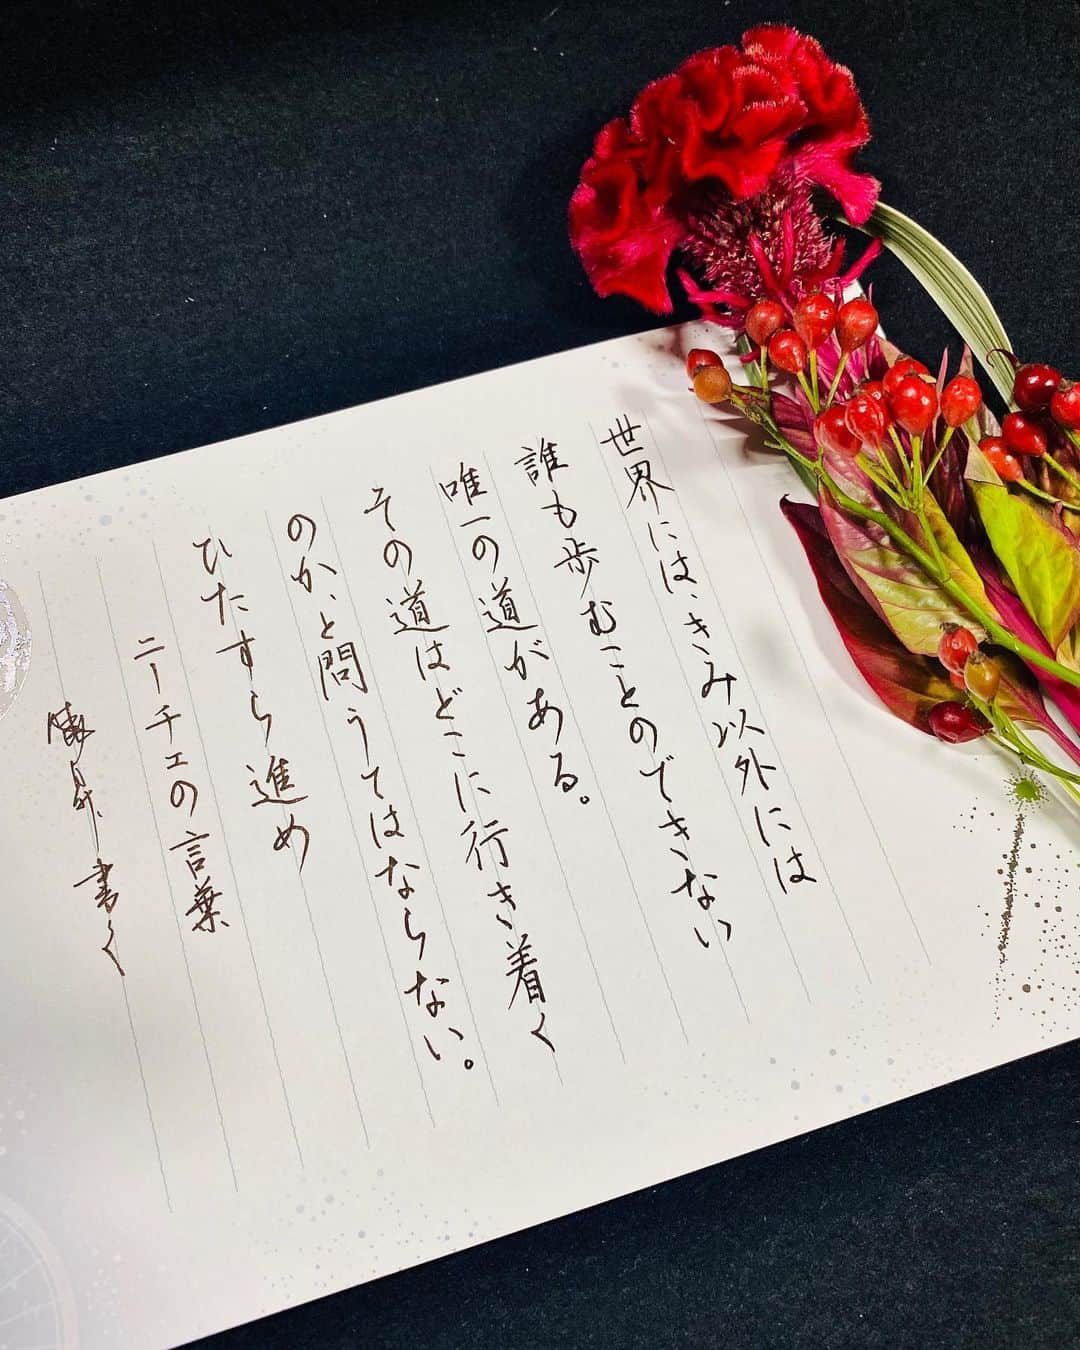 世界には、きみ以外には
誰も歩むことのできない
唯一の道がある。
その道はどこに行き着く
のか、と問うてはならない。
ひたすら進め
ニーチェの言葉
書く